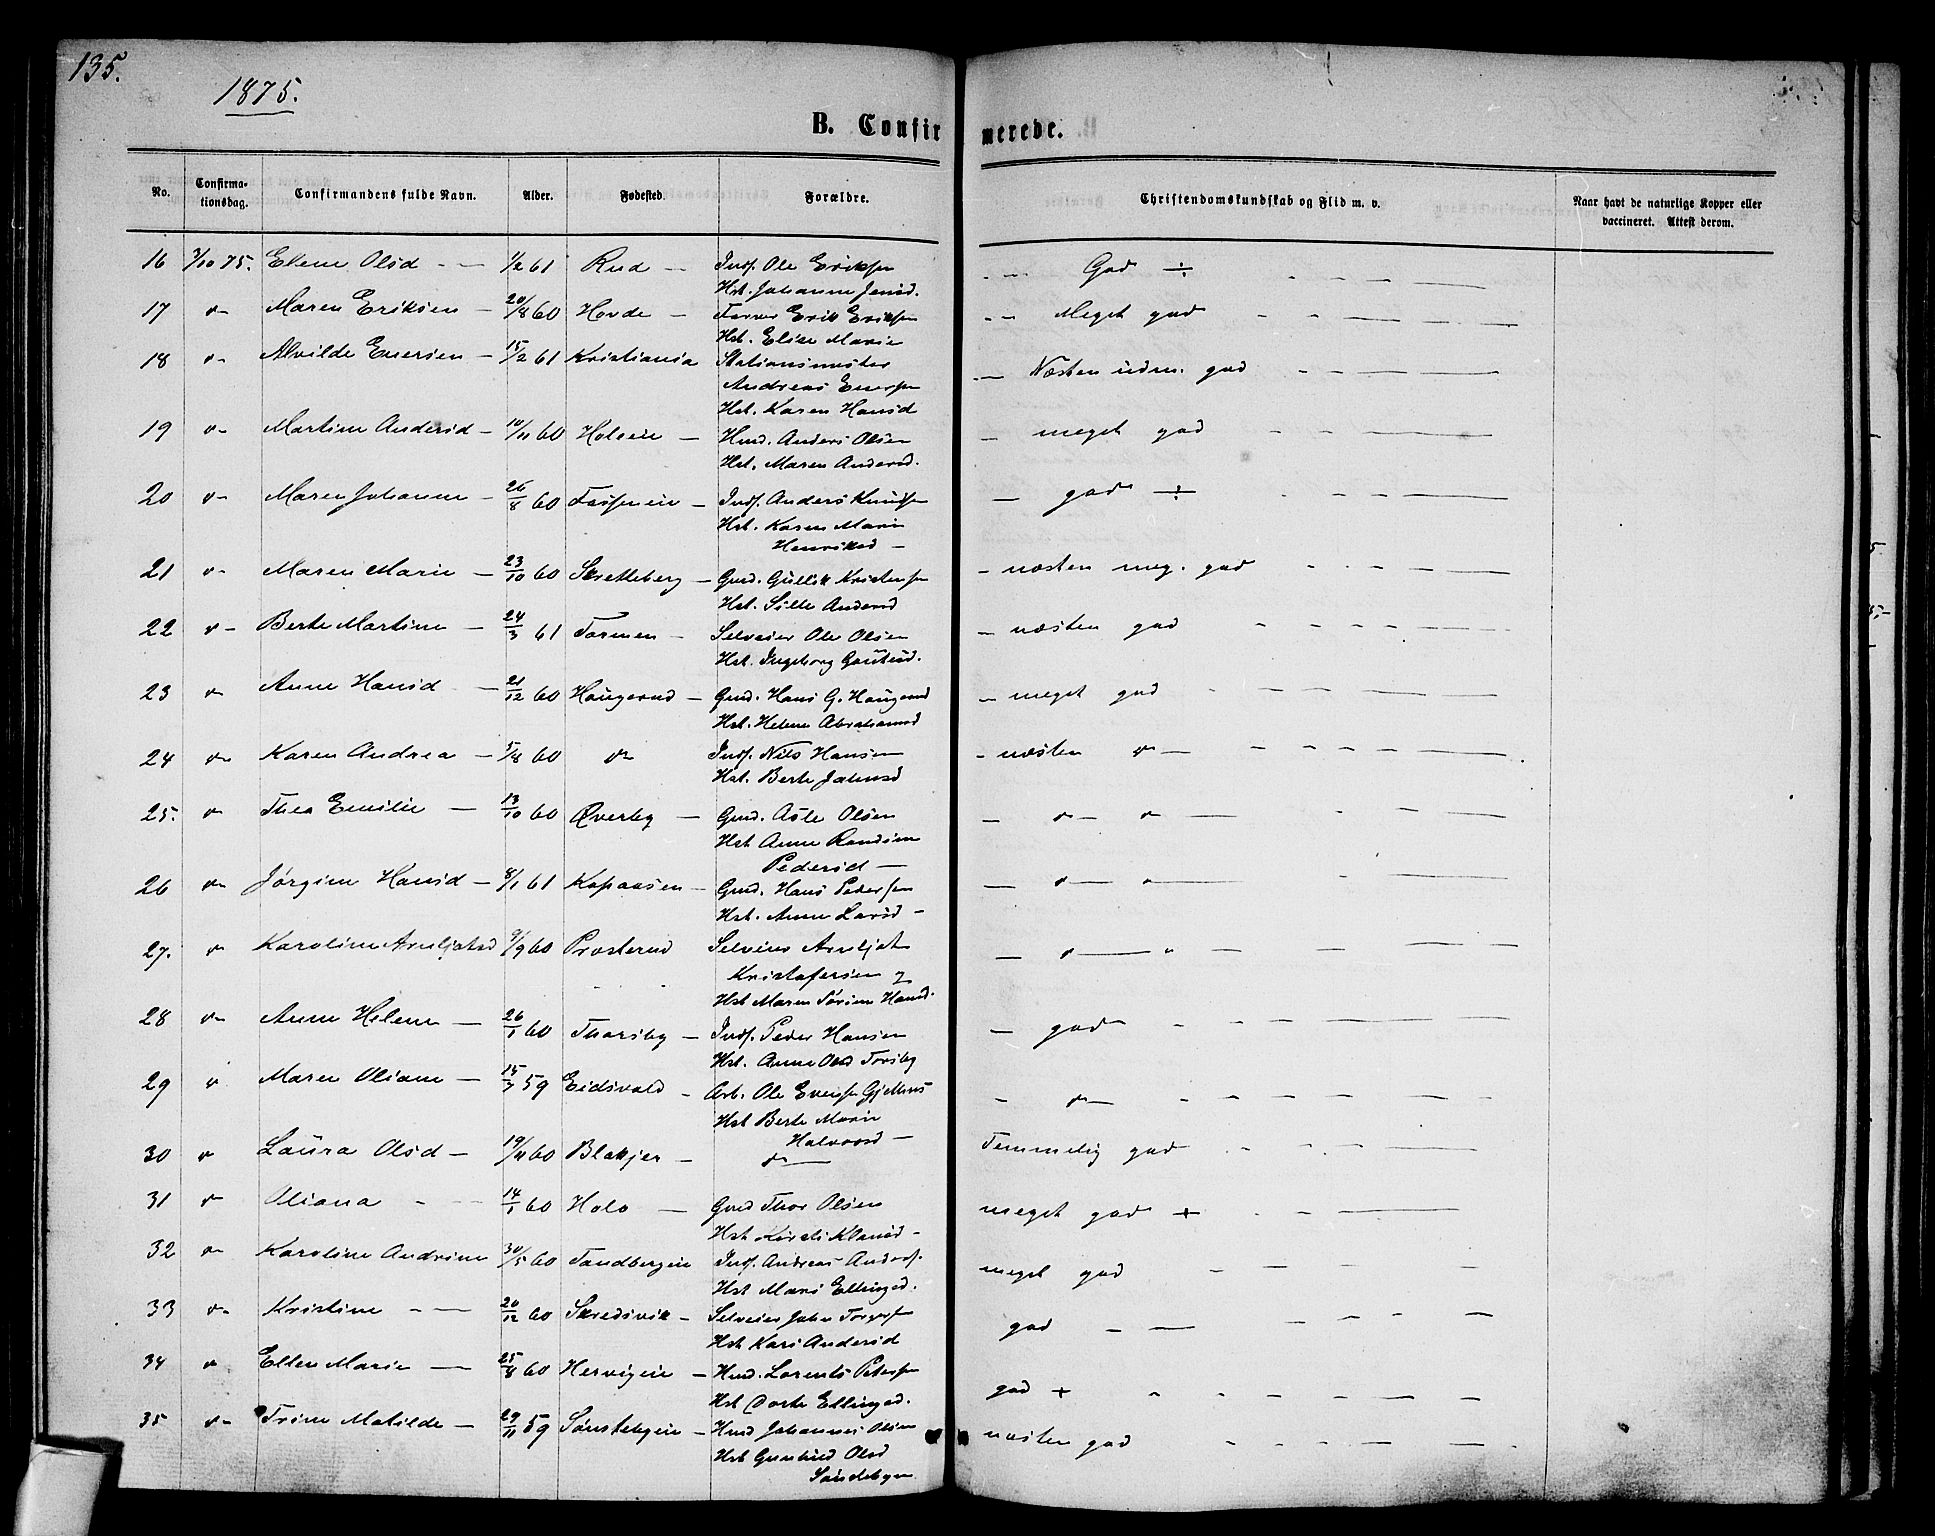 135.
1875.
B. Confirmerede.
No. Confirmationsdag. Confirmandens fulde Navn. Alder. Fødested. Forældre. Christendomskundskab og Flid m. v. Naar havt de naturlige Kopper eller vaccineret. Attest derom.
16 3/10 75. Elene Olsd - — 1/2 61 Rud — Inds. Ole Eriksen — God ÷
Hst. Johanne Jensd.
17 v- Maren Eriksen - 20/8 60 Hovde — Erik Eriksen — Meget god
Hst. Elise Marie
18 v- Alvilde Enersen - 15/2 61 Kristiania Stationsmester — Næsten udm. god
Andreas Enersen
Hst. Karen Hansd
19 v- Martine Andersd - 10/11 60 Holseie — Hmd. Anders Olsen — meget god
Hst. Maren Andersd.
20 v- Maren Johanne - 26/8 60 — Inds. Anders Knudsen — god ÷
Hst. Karen Marie
Henriksd —
21 v- Maren Marie — 23/10 60 Skretteberg — Gmd. Gullik Kristensen — næsten meg. god
Hst. Sille Andersd
22 v- Berte Martine — 24/3 61 Tormen — Selveier Ole Olsen — næsten god
Hst. Ingeborg
23 v- Anne Hansd — 21/12 60 Haugerud — Gmd. Hans G. Haugerud — meget god
Hst. Helene Abrahamsd
24 v- Karen Andrea — 5/8 60 v- Inds. Nils Hansen - næsten v- —
Hst. Berte
25. v- Thea Emilie — 13/10 60 Øverby — Gmd. Asle Olsen — v- v- —
Hst Anne
Pedersd —
26 v- Jørgine Hansd - 8/1 61 Kopaasen — Gmd. Hans Pedersen — v- v- —
Hst. Anne Larsd -
27. v- Karoline Arnljotsd 9/9 60 Prosterud Selveier Arnljot — v- — " -
Kristofersen og
Hst Maren Hansd.
28 v- Anne Helene — 26/1 60 Thorsby — Inds. Peder Hansen — god
Hst. Anne Olsd Torsby
29 v Maren Oliane — 15/7 59 Eidsvold - Arb. Ole Evensen - v- —
Hst Berte Marie
Halvorsd —
30 v Laura Olsd — 19/11 60 Blakjer — v- — Temmelig god
31 v- Oliana - - 14/1 60 Holo — Gmd Thor Olsen meget god +
Hst
32 v- Karoline Andrine 30/5 60 Tandbergeie Inds. Andreas Anders. meget god
Hst Mari Ellingsd.
33 v- Kristine - — 20/12 60 Skredsvik — Selveier John god
Hst Kari Andersd
34 v Ellen Marie — 25/8 60 Hervigeie — Hmd. Lorents god +
Hst Dorte Ellingsd.
35 v- Trine Matilde — 29/11 59 Sønstebyeie — Hmd Johannes Olsen næsten god
Hst Gunhild Olsd